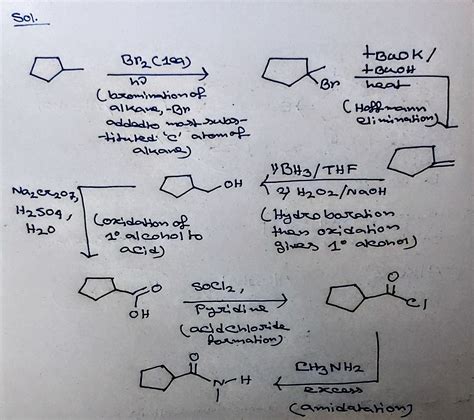 Sol.
Br2 (1eq)
hν
(bromination of
alkane, -Br
added to most subs-
tituted 'C' atom of
alkane)
Br
tBuOK/
tBuOH
heat
(Hoffmann
elimination)
1) BH3/THF
2) H2O2/NaOH
(Hydroboration
then oxidation
gives 1° alcohol)
OH
Na2Cr2O7,
H2SO4,
H2O
(oxidation of
1° alcohol to
acid)
O
OH
SOCl2,
Pyridine
(acid chloride
formation)
O
Cl
CH3NH2
excess
(amidatation)
O
N-H